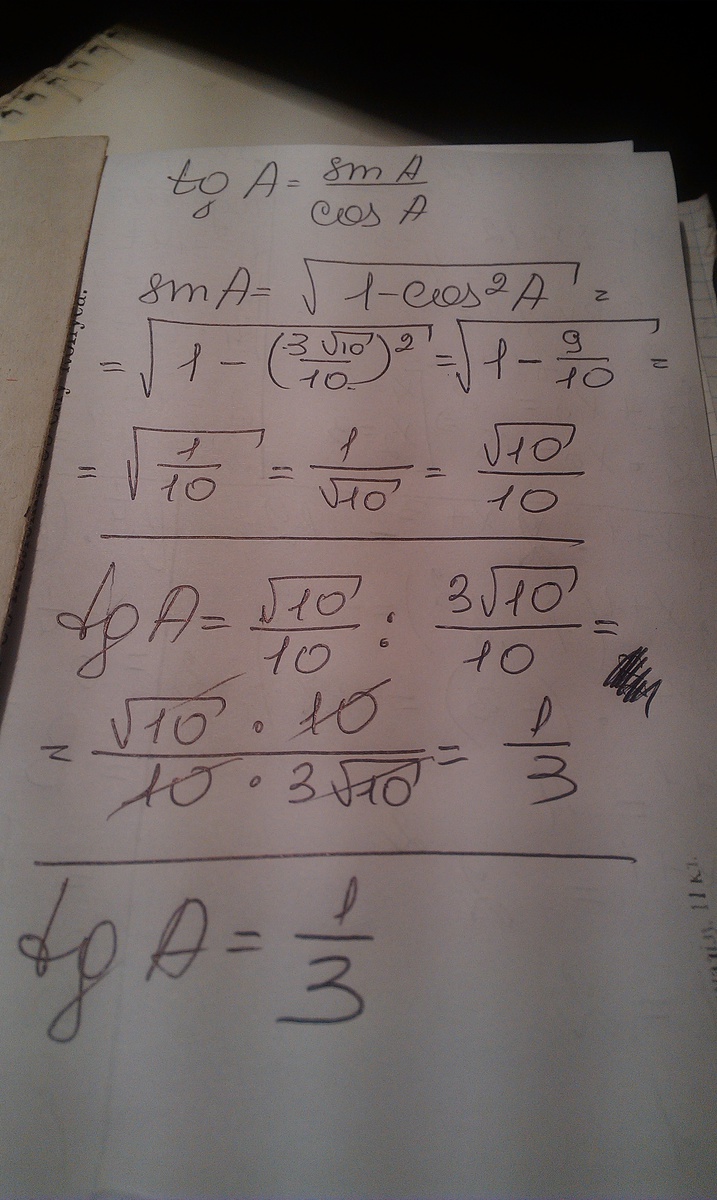 tg A = sin A / cos A
sin A = √(1 - cos²A) =
= √(1 - (3√10/10)²) = √(1 - 9/10) =
= √(1/10) = 1/√10 = √10/10
tg A = √10/10 : 3√10/10 =
= √10 · 10 / 10 · 3√10 = 1/3
tg A = 1/3